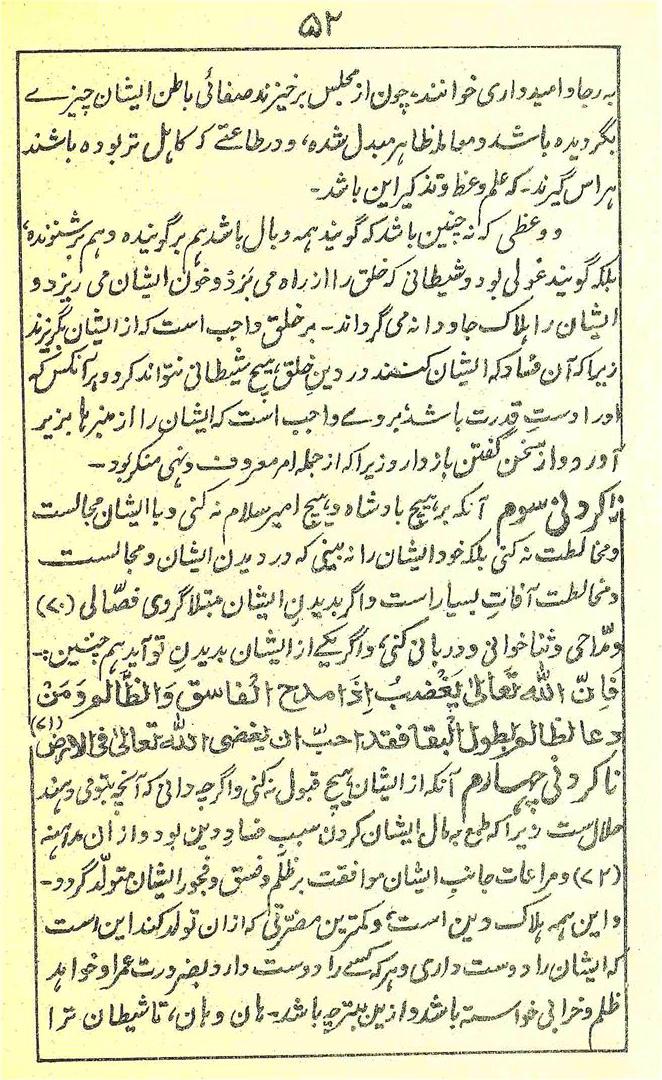 ۵۲
به رجا و امیدواری خوانند، چون از مجلس برخیزند صفائی باطن ایشان چیزے
بگردیده باشد و معامله ظاهر مبدل شده، و در طاعتے که کاهل تر بوده باشند
هراس گیرند۔ که علم وعظ و تذکیر این باشد۔
و وعظی که نه چنین باشد که گویند همه وبال باشد هم بر گوینده و هم بر شنونده،
بلکه گویند غولی بود و شیطانی که خلق را از راه می بَرَد و خون ایشان می ریزد و
ایشان را هلاک جاودانه می گرداند۔ بر خلق واجب است که از ایشان بگریزند
زیرا که آن فساد که ایشان کنند در دینِ خلق، هیچ شیطانی نتواند کرد و هر آنکس که
اورا دستِ قدرت باشد، بروے واجب است که ایشان را از منبرها بزیر
آورد و از سخن گفتن باز دارد زیرا که از جمله امر معروف و نهی منکر بود۔
ناکردنی سوم آنکه بر هیچ بادشاه و هیچ امیر سلام نه کنی و با ایشان مجالست
و مخالطت نه کنی بلکه خود ایشان را نه بینی که در دیدن ایشان و مجالست
و مخالطت آفات بسیار است و اگر بدیدن ایشان مبتلا گردی فصّالی (۷۰)
و مدّاحی و ثنا خوانی و دربانی کنی، و اگر یکے از ایشان بدیدن تو آید هم چنین:۔
فَاِنَّ اللهَ تَعَالىٰ يَغْضَبُ اِذَا مدح الْفاسق وَالظَّالم وَمَنْ
دعا لظالم بِطول الْبقا فقد احبّ ان يعصى الله تعالىٰ فی الارض (۷۱)
ناکردنی چهارم آنکه از ایشان هیچ قبول نه کنی و اگرچه دانی که آنچه بتو می دهند
حلال ست زیرا که طمع به مال ایشان کردن سبب فساد دین بود و از ان مداهنه
(۷۲) و مراعات جانب ایشان موافقت بر ظلم و فسق و فجور ایشان متولّد گردد۔
و این همه هلاک دین است، و کمترین مضرّتی که ازان تولد کند این است
که ایشان را دوست داری و هر که کسے را دوست دارد بضرورت عمر او خواهد
ظلم و خرابی خواسته باشد و ازین بتر چه باشد۔ هان و هان، تا شیطان ترا